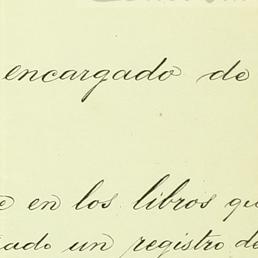 encargado de
en los libros
un registro de